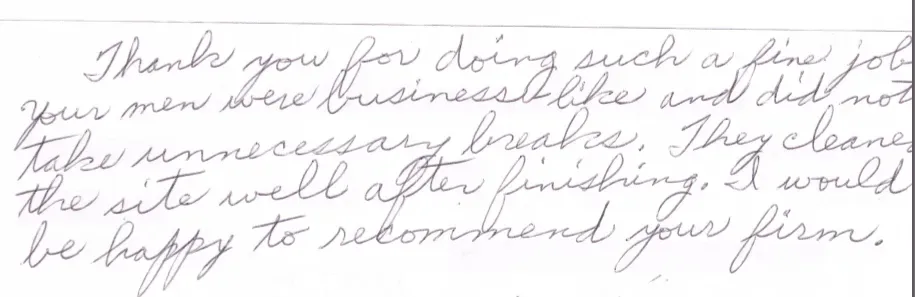 Thank you for doing such a fine job
your men were business-like and did not
take unnecessary breaks. They cleane
the site well after finishing. I would
be happy to recommend your firm.